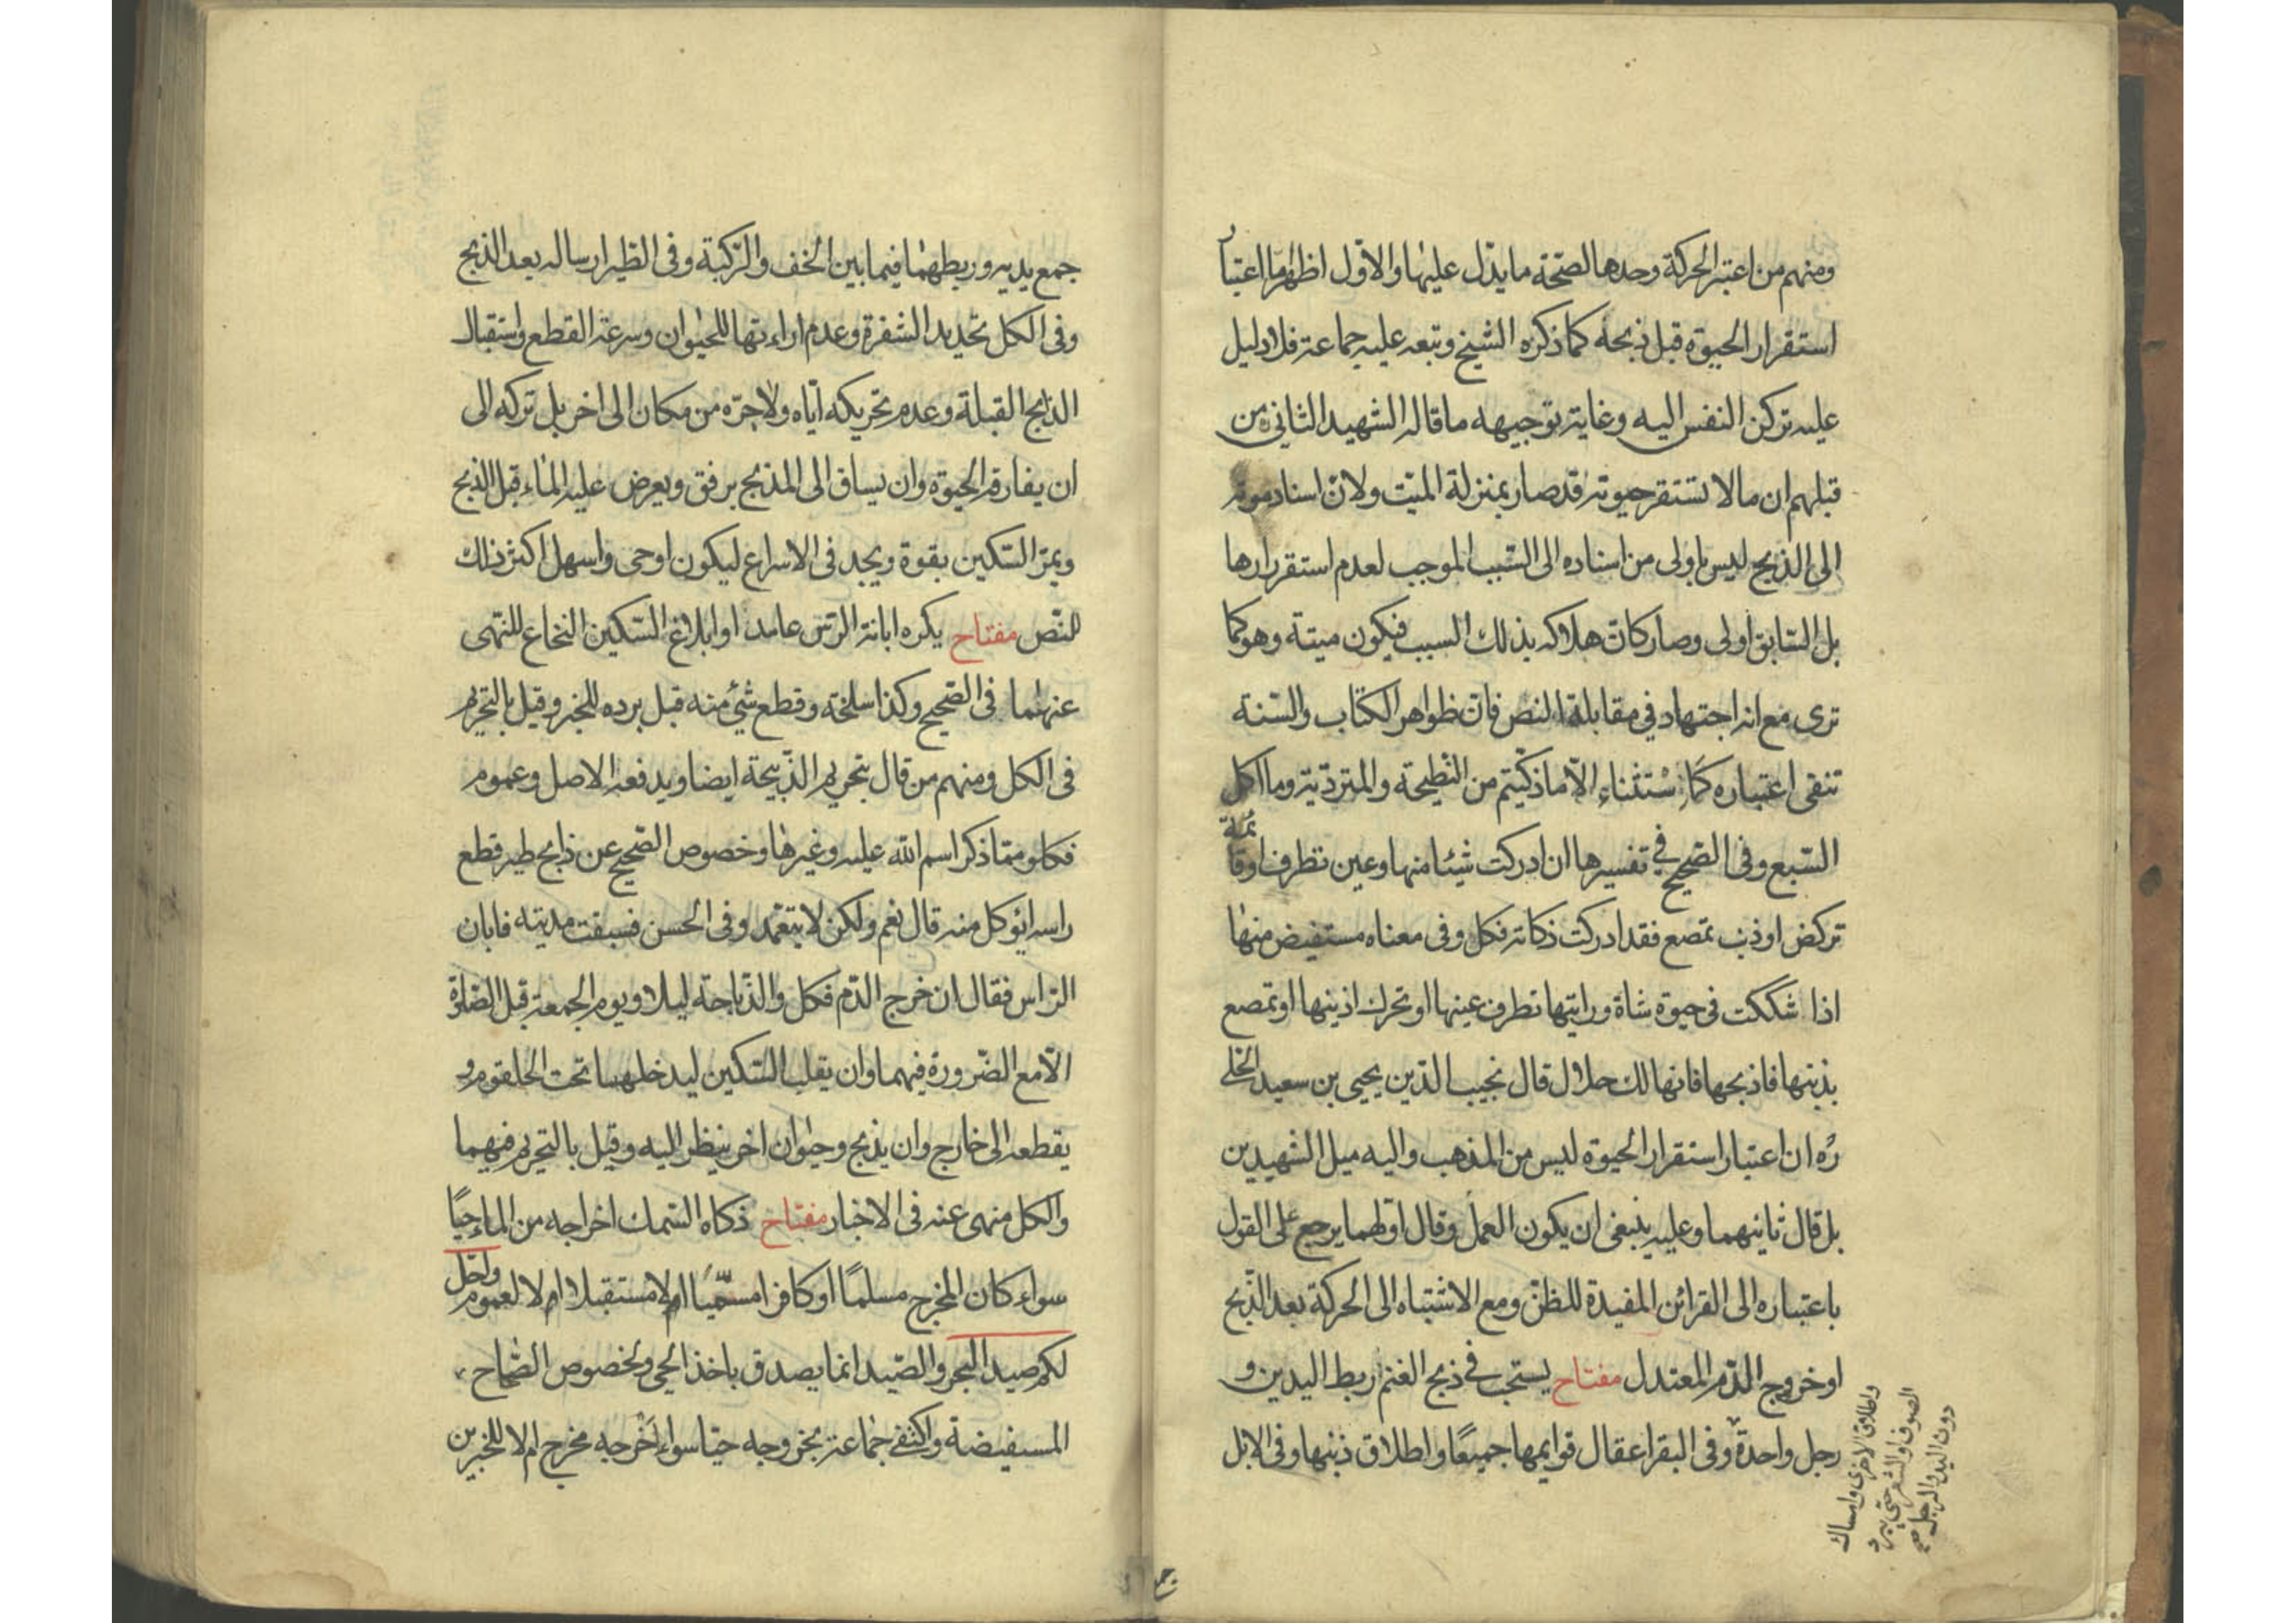 ومنهم من اعتبر الحركة وحدها لصحة ما يدل عليها والاول اظهر اما اعتبار
استقرار الحيوة قبل ذبحه كما ذكره الشيخ وتبعه عليه جماعة فلا دليل
عليه تركن النفس اليه وغاية توجيهه ما قاله الشهيد الثاني ره من
قبلهم ان ما لا تستقر حيوته قد صار بمنزلة الميت ولان اسناد موته
الى الذبح ليس باولى من اسناده الى السبب الموجب لعدم استقرارها
بل السابق اولى وصار كان هلاكه بذلك السبب فيكون ميتة وهو كما
ترى مع انه اجتهاد في مقابلة النص فان ظواهر الكتاب والسنة
تنفى اعتباره كاستثناء الا ما ذكيتم من النطيحة والمتردية وما اكل
السبع وفى الصحيح في تفسيرها ان ادركت شيئا منها وعين تطرف او قائمة
تركض او ذنب تمصع فقد ادركت ذكاته فكل وفى معناه مستفيض منها
اذا شككت فى حيوة شاة ورايتها تطرف عينها او تحرك اذنيها او تمصع
بذنبها فاذبحها فانها لك حلال قال نجيب الدين يحيى بن سعيد الحلى
ره ان اعتبار استقرار الحيوة ليس من المذهب واليه ميل الشهيدين
بل قال ثانيهما وعليه ينبغى ان يكون العمل وقال اولهما يرجع على القول
باعتباره الى القرائن المفيدة للظن ومع الاشتباه الى الحركة بعد الذبح
او خروج الدم المعتدل مفتاح يستحب في ذبح الغنم ربط اليدين و
رجل واحدة وفى البقر اعقال قوايمها جميعا واطلاق ذنبها وفى الابل
واطلاق الاخرى وامساك
الصوف او الشعر حتى يبرد
دون اليد والرجل صح
جمع
جمع يديه وربطهما فيما بين الخف والركبة وفى الطير ارساله بعد الذبح
وفى الكل تحديد الشفرة وعدم اراءتها للحيوان وسرعة القطع واستقبال
الذابح القبلة وعدم تحريكه اياه ولا جره من مكان الى اخر بل تركه الى
ان يفارقه الحيوة وان يساق الى المذبح برفق ويعرض عليه الماء قبل الذبح
ويمر السكين بقوة ويجد فى الاسراع ليكون اوحى واسهل اكثر ذلك
للنص مفتاح يكره ابانة الراس عامدا او ابلاغ السكين النخاع للنهى
عنهما فى الصحيح وكذا سلخه وقطع شئ منه قبل برده للخبر وقيل بالتحريم
فى الكل ومنهم من قال بتحريم الذبيحة ايضا ويدفعه الاصل وعموم
فكلوا مما ذكر اسم الله عليه وغيرها وخصوص الصحيح عن ذابح طير قطع
راسه ايؤكل منه قال نعم ولكن لا يتعمد وفى الحسن فسبقت مديته فابان
الراس فقال ان خرج الدم فكل والذباحة ليلا ويوم الجمعة قبل الصلوة
الا مع الضرورة فيهما وان يقلب السكين ليدخلها تحت الحلقوم و
يقطعه الى خارج وان يذبح وحيوان اخر ينظر اليه وقيل بالتحريم فيهما
والكل منهى عنه فى الاخبار مفتاح ذكاه السمك اخراجه من الماء حيا
سواء كان المخرج مسلما او كافرا مسميا ام لا مستقبلا ام لا لعموم واحل
لكم صيد البحر والصيد انما يصدق باخذ الحى ولخصوص الصحاح
المستفيضة واكتفى جماعة بخروجه حيا سواء اخرجه مخرج ام لا للخبرين